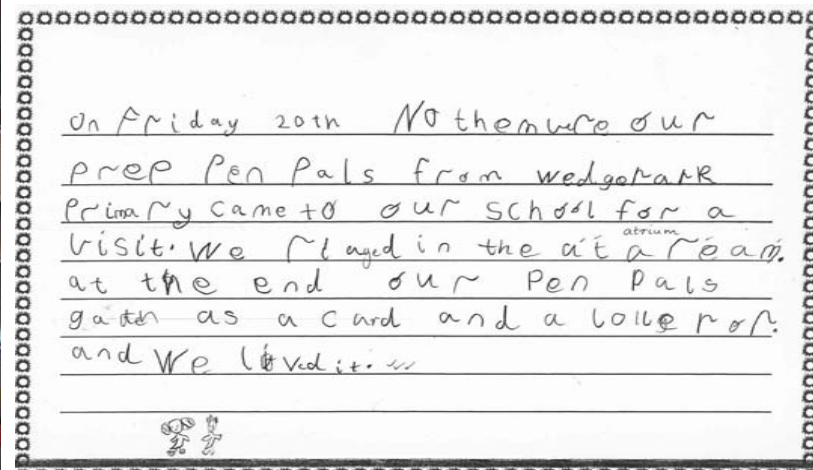 On Friday 20th Nothemvre our
prep Pen Pals from wedgepark
Primary came to our school for a
visit. We played in the at a ream.
atrium
at the end our Pen Pals
gaten as a card and a lollepop.
and We loved it.